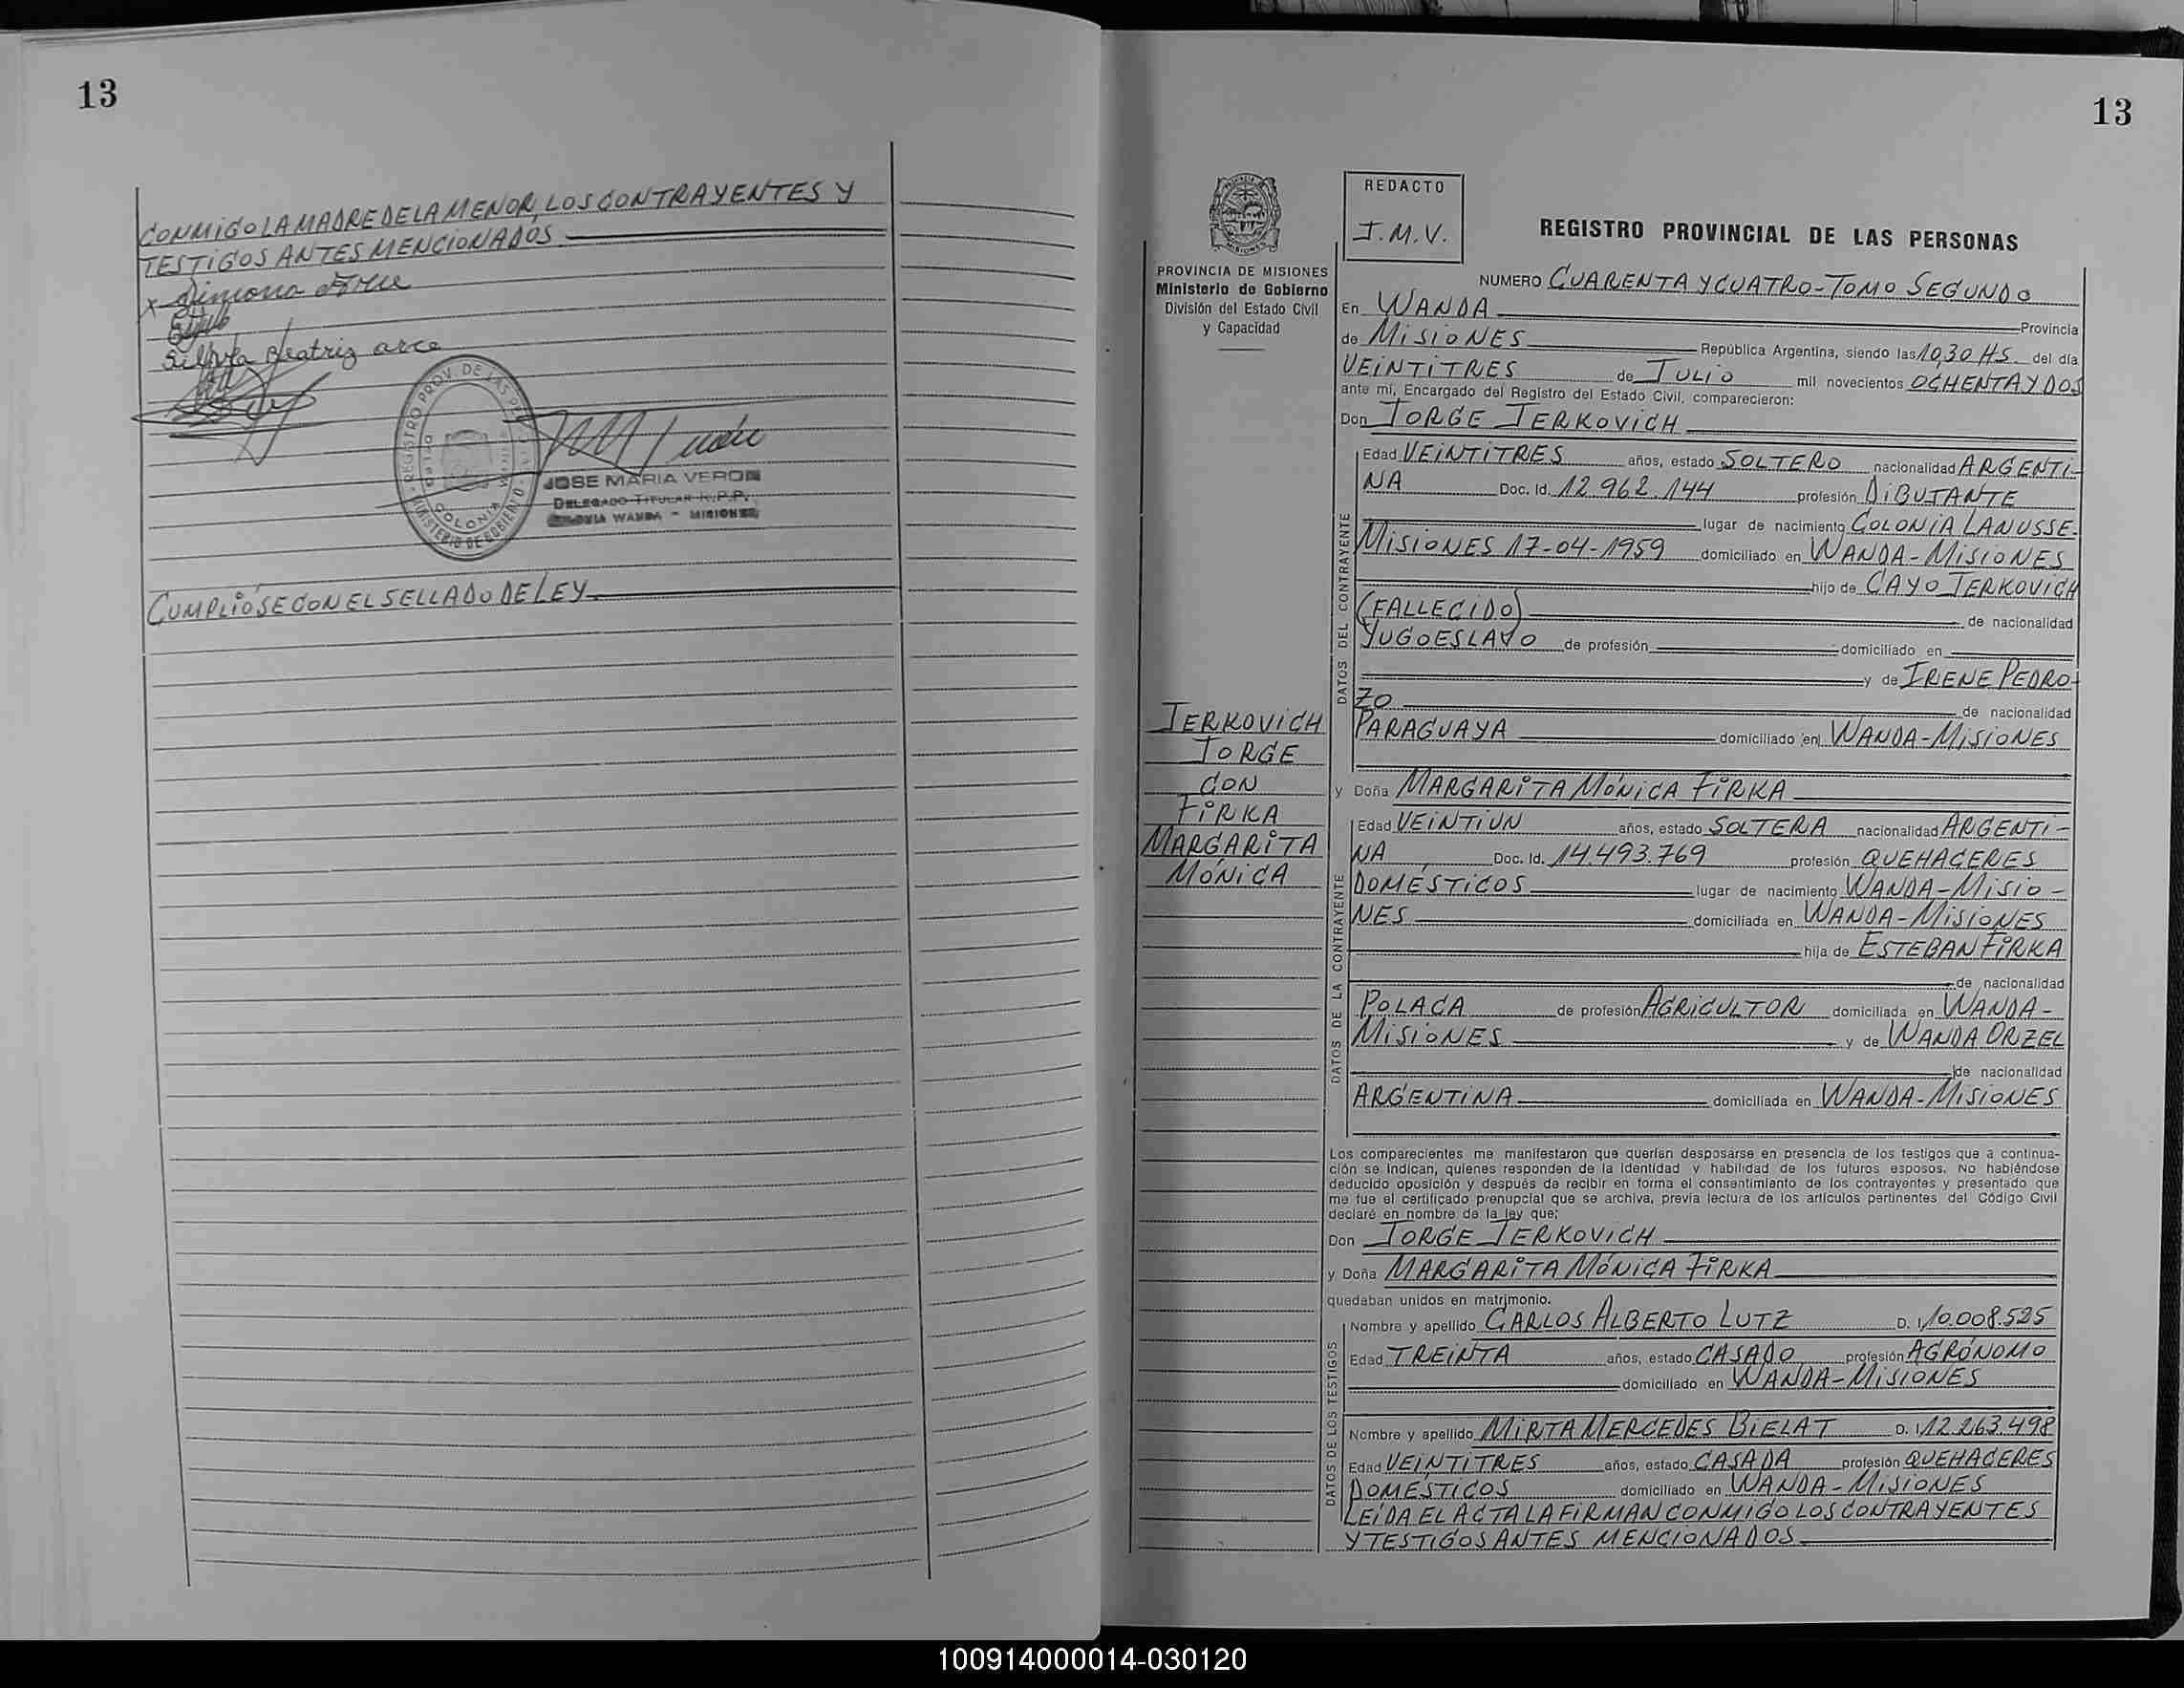 13
CONMIGO LA MADRE DE LA MENOR, LOS CONTRAYENTES Y
TESTIGOS ANTES MENCIONADOS
x Simona Arce
Silvia Beatriz arce
REGISTRO PROV. DE LAS
COLONIA
MINISTERIO DE GOBIERNO
JOSE MARIA VERON
DELEGADO TITULAR R.P.P.
COLONIA WANDA - MISIONES
CUMPLIÓSE CON EL SELLADO DE LEY
13
PROVINCIA DE MISIONES
Ministerio de Gobierno
División del Estado Civil
y Capacidad
REDACTO
J.M.V.
REGISTRO PROVINCIAL DE LAS PERSONAS
NUMERO CUARENTA Y CUATRO - TOMO SEGUNDO
En WANDA Provincia
de MISIONES República Argentina, siendo las 10,30 HS. del día
VEINTITRES de JULIO mil novecientos OCHENTA Y DOS
ante mí, Encargado del Registro del Estado Civil, comparecieron:
Don JORGE JERKOVICH
DATOS DEL CONTRAYENTE
Edad VEINTITRES años, estado SOLTERO nacionalidad ARGENTI-
NA Doc. Id. 12.962.144 profesión DIBUJANTE
lugar de nacimiento COLONIA LANUSSE-
MISIONES 17-04-1959 domiciliado en WANDA - MISIONES
hijo de CAYO JERKOVICH
(FALLECIDO) de nacionalidad
YUGOESLAVO de profesión domiciliado en
y de IRENE PEDRO-
ZO de nacionalidad
PARAGUAYA domiciliado en WANDA - MISIONES
JERKOVICH
JORGE
CON
FIRKA
MARGARITA
MÓNICA
y Doña MARGARITA MÓNICA FIRKA
DATOS DE LA CONTRAYENTE
Edad VEINTIUN años, estado SOLTERA nacionalidad ARGENTI-
NA Doc. Id. 14.493.769 profesión QUEHACERES
DOMÉSTICOS lugar de nacimiento WANDA - MISIO-
NES domiciliada en WANDA - MISIONES
hija de ESTEBAN FIRKA
de nacionalidad
POLACA de profesión AGRICULTOR domiciliada en WANDA -
MISIONES y de WANDA ORZEL
de nacionalidad
ARGENTINA domiciliada en WANDA - MISIONES
Los comparecientes me manifestaron que querían desposarse en presencia de los testigos que a continua-
ción se indican, quienes responden de la identidad y habilidad de los futuros esposos. No habiéndose
deducido oposición y después de recibir en forma el consentimiento de los contrayentes y presentado que
me fue el certificado prenupcial que se archiva, previa lectura de los artículos pertinentes del Código Civil
declaré en nombre de la ley que:
Don JORGE JERKOVICH
y Doña MARGARITA MÓNICA FIRKA
quedaban unidos en matrimonio.
DATOS DE LOS TESTIGOS
Nombre y apellido CARLOS ALBERTO LUTZ D. I. 10.008.525
Edad TREINTA años, estado CASADO profesión AGRÓNOMO
domiciliado en WANDA - MISIONES
Nombre y apellido MIRTA MERCEDES BIELAT D. I. 12.263.498
Edad VEINTITRES años, estado CASADA profesión QUEHACERES
DOMÉSTICOS domiciliado en WANDA - MISIONES
LEÍDA EL ACTA LA FIRMAN CONMIGO LOS CONTRAYENTES
Y TESTIGOS ANTES MENCIONADOS
100914000014-030120